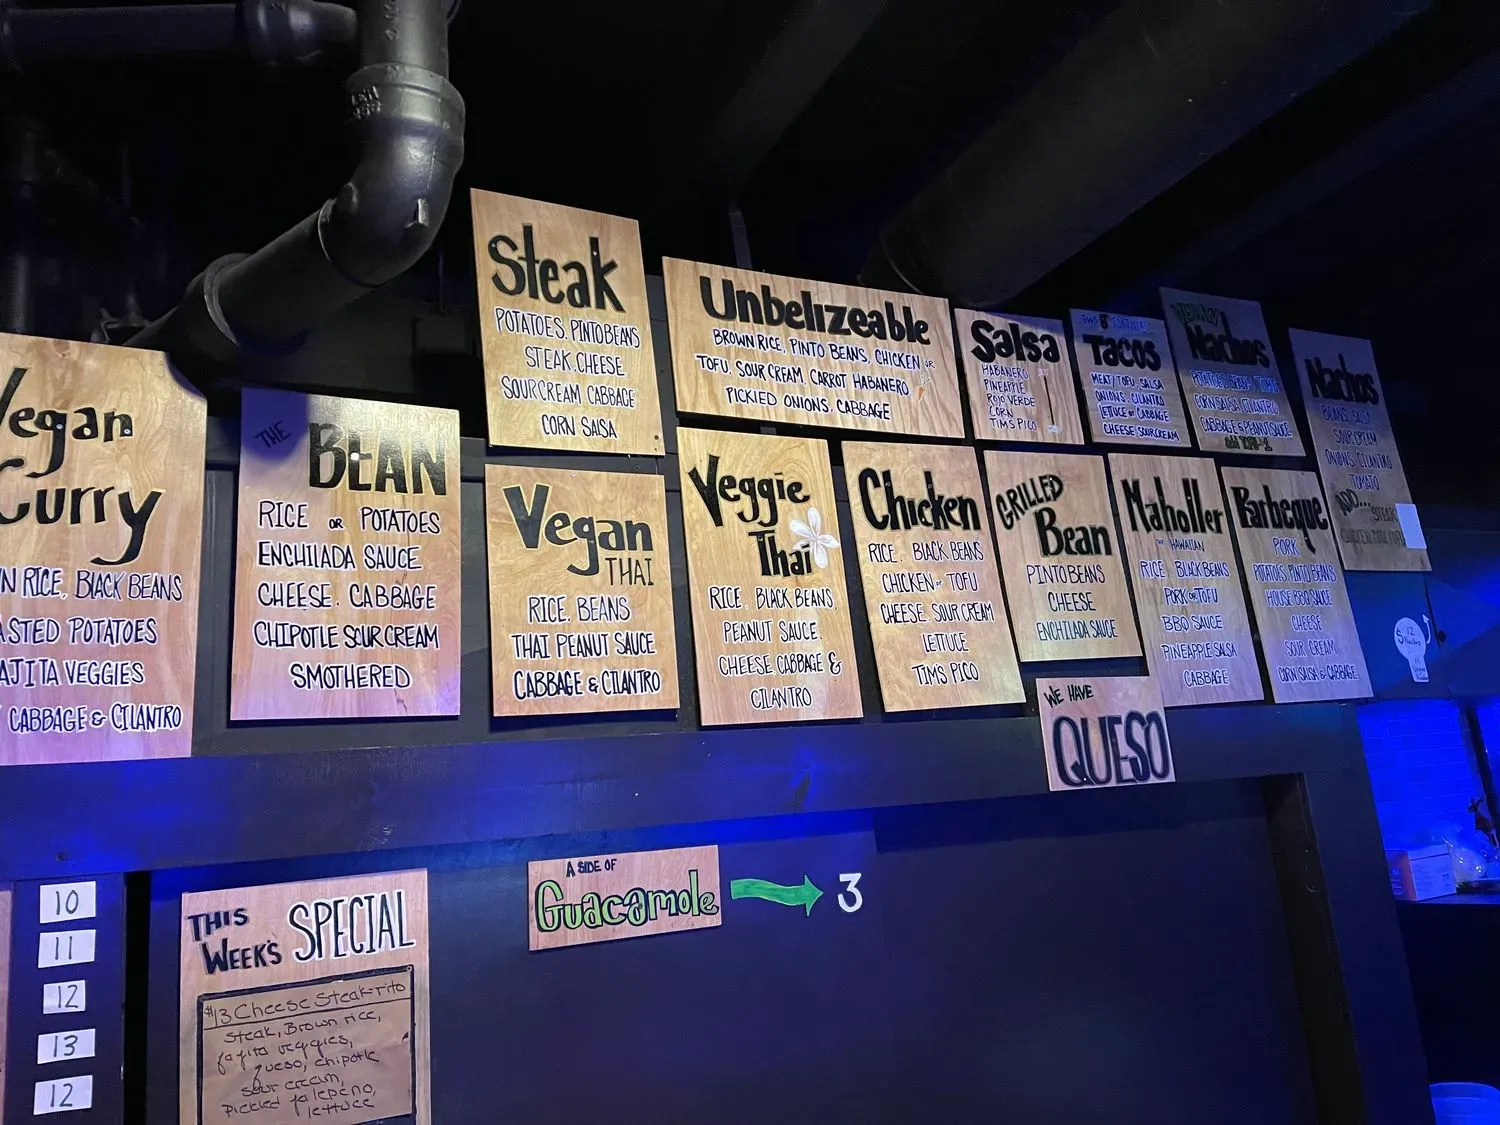 Vegan
Curry
N RICE, BLACK BEANS
ASTED POTATOES
AJITA VEGGIES
CABBAGE & CILANTRO
THE
BEAN
RICE OR POTATOES
ENCHILADA SAUCE
CHEESE. CABBAGE
CHIPOTLE SOUR CREAM
SMOTHERED
Steak
POTATOES, PINTO BEANS
STEAK, CHEESE
SOUR CREAM CABBAGE
CORN SALSA
Vegan
THAI
RICE, BEANS
THAI PEANUT SAUCE
CABBAGE & CILANTRO
Unbelizeable
BROWN RICE, PINTO BEANS, CHICKEN OR
TOFU, SOUR CREAM, CARROT HABANERO
PICKLED ONIONS, CABBAGE
Veggie
Thai
RICE, BLACK BEANS
PEANUT SAUCE
CHEESE, CABBAGE &
CILANTRO
Chicken
RICE, BLACK BEANS
CHICKEN OR TOFU
CHEESE, SOUR CREAM
LETTUCE
TIM'S PICO
Salsa
HABANERO
PINEAPPLE
ROJO VERDE
CORN
TIMS PICO
TWO 8" TORTILLAS
TACOS
MEAT/TOFU, SALSA
ONIONS, CILANTRO
LETTUCE OR CABBAGE
CHEESE, SOUR CREAM
Nachos
CORN SALSA, CILANTRO
CABBAGE & PEANUT SAUCE
Nachos
BEANS, SALSA
SOUR CREAM
ONIONS, CILANTRO
TOMATO
ADD... STEAK
GRILLED
Bean
PINTO BEANS
CHEESE
ENCHILADA SAUCE
Maholler
THE HAWAIIAN
RICE, BLACK BEANS
PORK OR TOFU
BBQ SAUCE
PINEAPPLE SALSA
CABBAGE
Barbeque
PORK
POTATOES, PINTO BEANS
HOUSE BBQ SAUCE
CHEESE
SOUR CREAM
CORN SALSA & CABBAGE
$12
WE HAVE
QUESO
A SIDE OF
Guacamole
3
10
11
12
13
12
THIS
WEEK'S
SPECIAL
$13 Cheese Steak-rito
Steak, Brown rice,
fajita veggies,
queso, chipotle
sour cream,
Pickled jalepeno,
lettuce